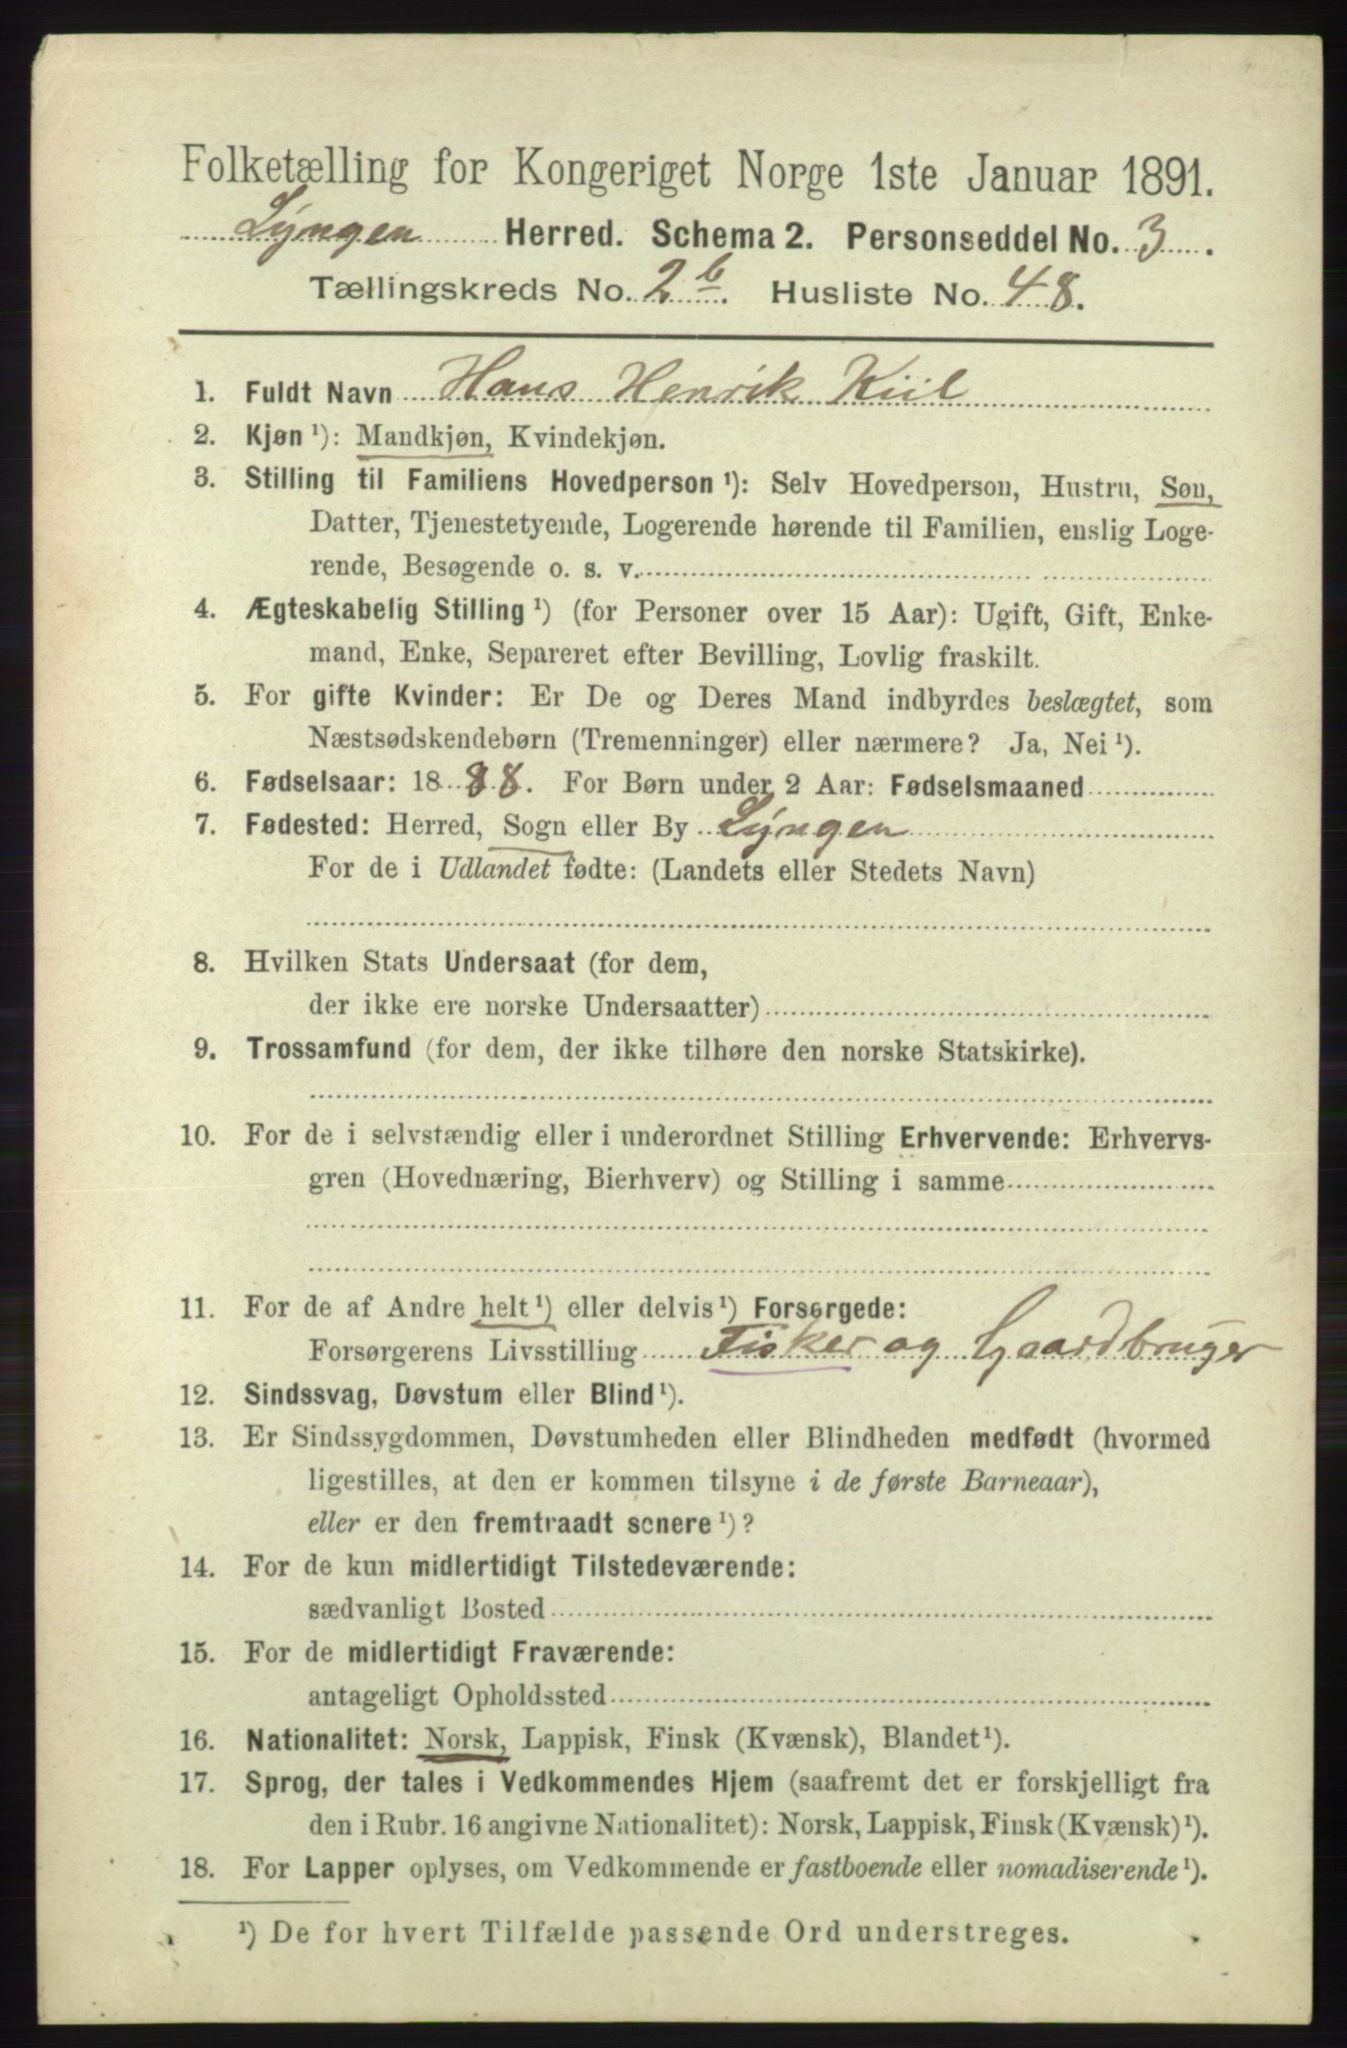 Folketælling for Kongeriget Norge 1ste Januar 1891.
Lyngen Herred. Schema 2. Personseddel No. 3.
Tællingskreds No. 2 b. Husliste No. 48.
1. Fuldt Navn Hans Henrik Kiil
2. Kjøn ¹): Mandkjøn, Kvindekjøn.
3. Stilling til Familiens Hovedperson ¹): Selv Hovedperson, Hustru, Søn,
Datter, Tjenestetyende, Logerende hørende til Familien, enslig Loge-
rende, Besøgende o. s. v.
4. Ægteskabelig Stilling ¹) (for Personer over 15 Aar): Ugift, Gift, Enke-
mand, Enke, Separeret efter Bevilling, Lovlig fraskilt.
5. For gifte Kvinder: Er De og Deres Mand indbyrdes beslægtet, som
Næstsødskendebørn (Tremenninger) eller nærmere? Ja, Nei ¹).
6. Fødselsaar: 1888. For Børn under 2 Aar: Fødselsmaaned
7. Fødested: Herred, Sogn eller By Lyngen
For de i Udlandet fødte: (Landets eller Stedets Navn)
8. Hvilken Stats Undersaat (for dem,
der ikke ere norske Undersaatter)
9. Trossamfund (for dem, der ikke tilhøre den norske Statskirke).
10. For de i selvstændig eller i underordnet Stilling Erhvervende: Erhvervs-
gren (Hovednæring, Bierhverv) og Stilling i samme
11. For de af Andre helt ¹) eller delvis ¹) Forsørgede:
Forsørgerens Livsstilling Fisker og Gaardbruger
12. Sindssvag, Døvstum eller Blind ¹).
13. Er Sindssygdommen, Døvstumheden eller Blindheden medfødt (hvormed
ligestilles, at den er kommen tilsyne i de første Barneaar),
eller er den fremtraadt senere ¹)?
14. For de kun midlertidigt Tilstedeværende:
sædvanligt Bosted
15. For de midlertidigt Fraværende:
antageligt Opholdssted
16. Nationalitet: Norsk, Lappisk, Finsk (Kvænsk), Blandet ¹).
17. Sprog, der tales i Vedkommendes Hjem (saafremt det er forskjelligt fra
den i Rubr. 16 angivne Nationalitet): Norsk, Lappisk, Finsk (Kvænsk) ¹).
18. For Lapper oplyses, om Vedkommende er fastboende eller nomadiserende ¹).
¹) De for hvert Tilfælde passende Ord understreges.